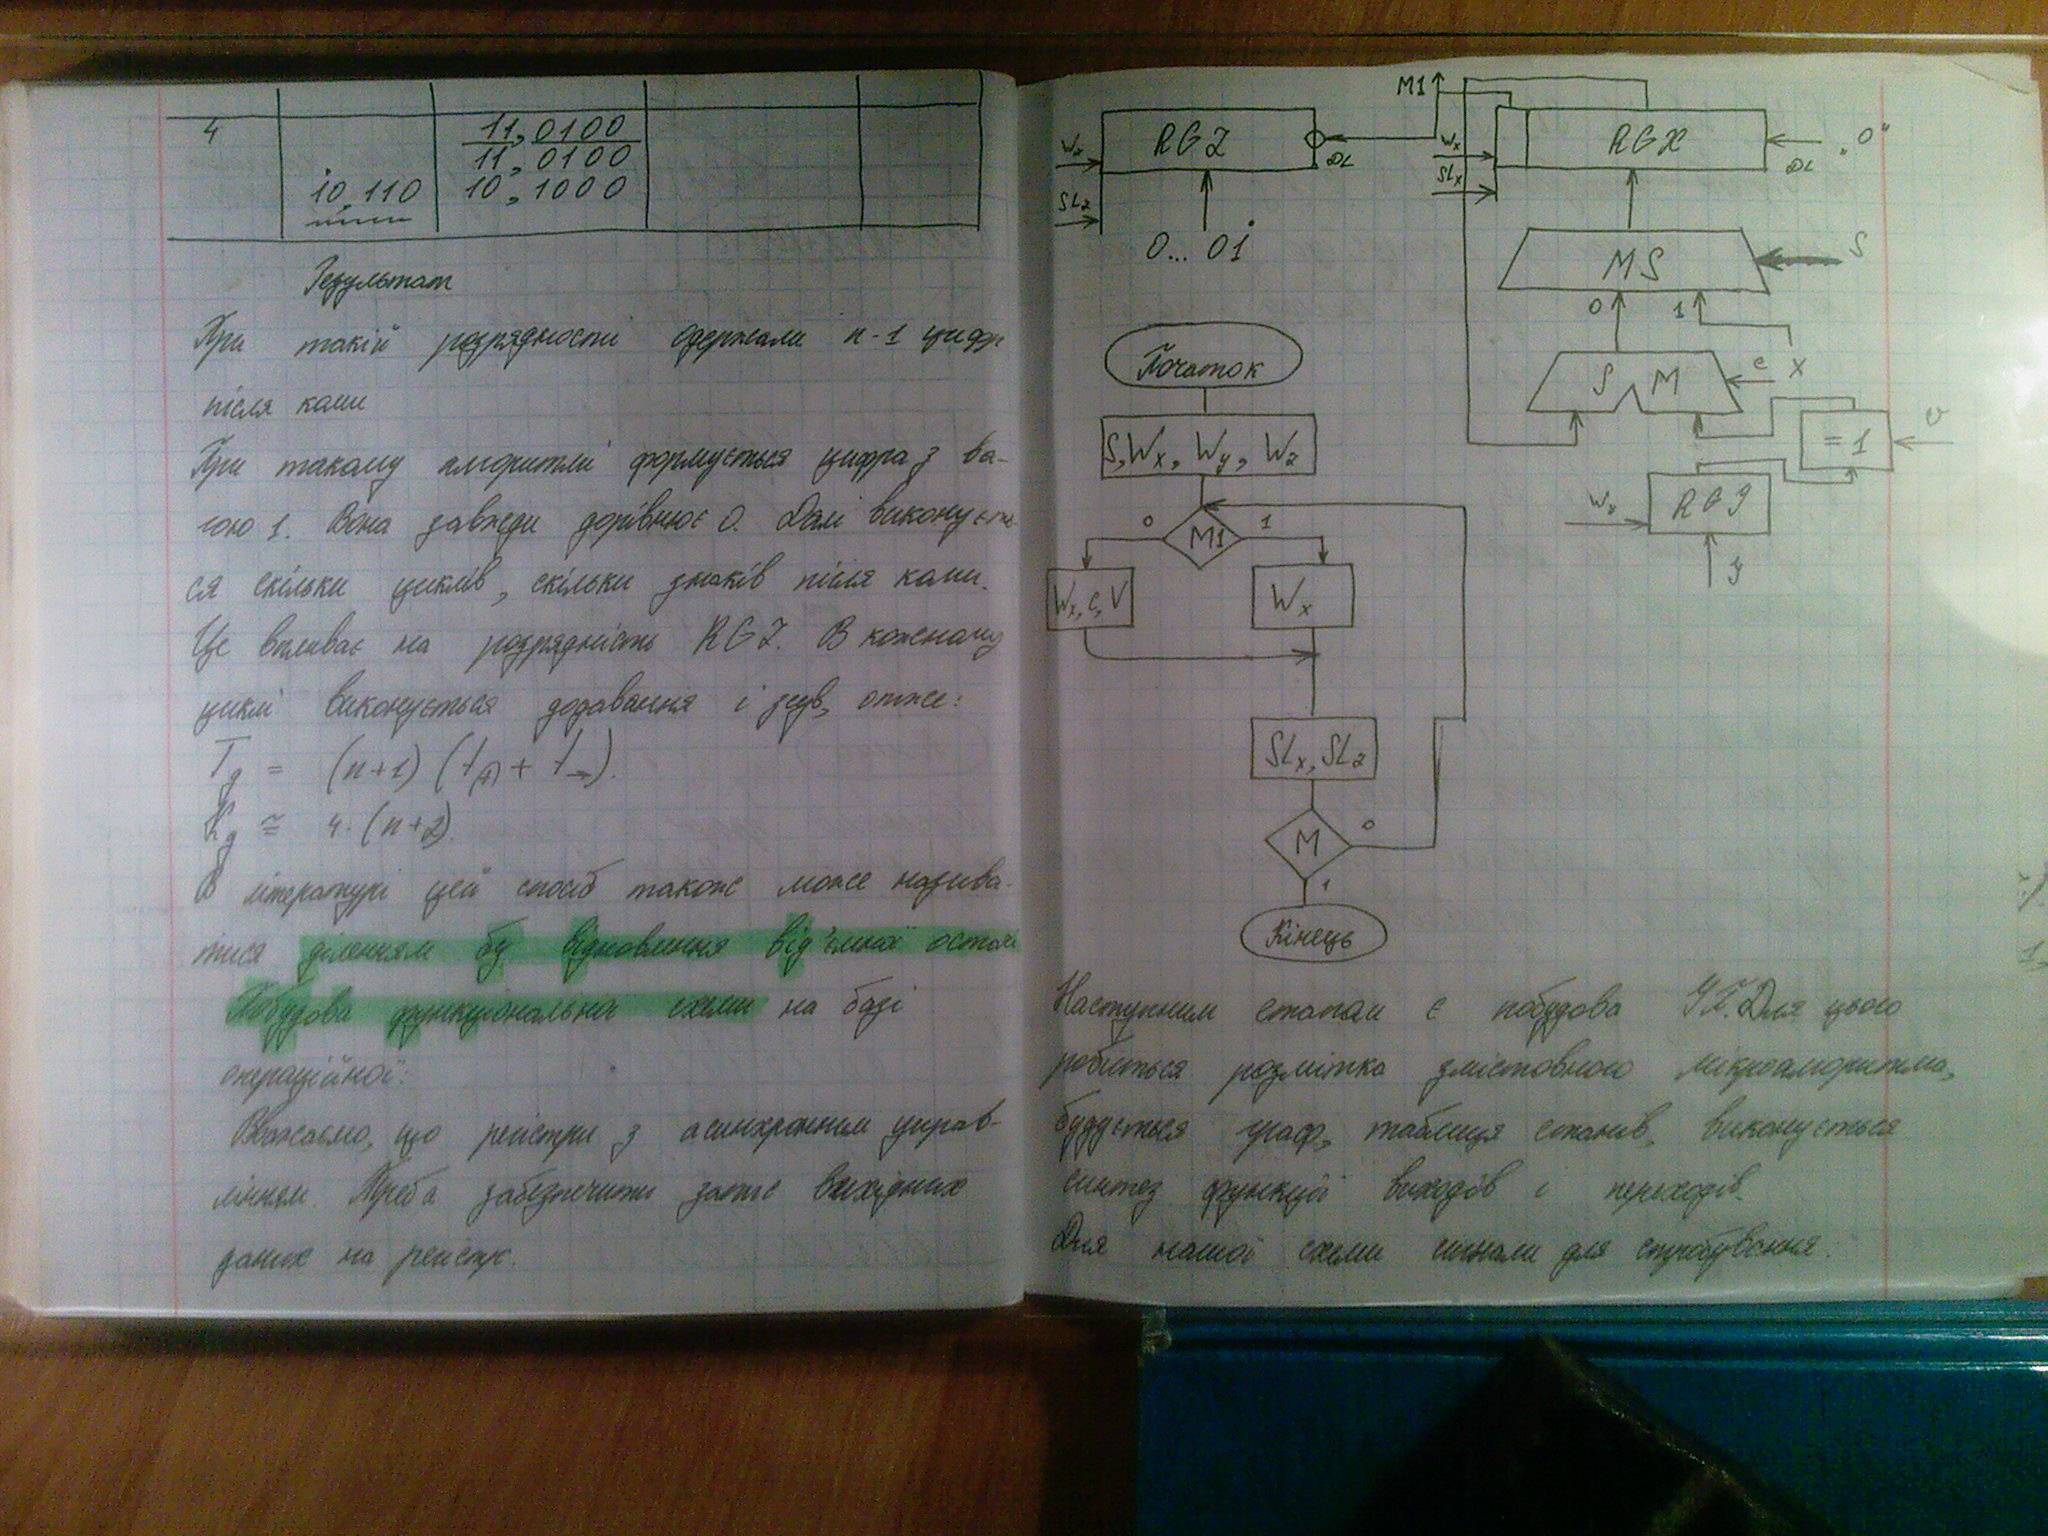 4
11,0100
11,0100
10.110 10,1000
Результат
При такій розрядности одержали n-1 цифр
після коми
При такому алгоритмі формується цифра з ва-
гою 1. Вона завжди дорівнює 0. Далі виконуєть-
ся скільки циклів, скільки знаків після коми.
Це впливає на розрядність RGZ. В кожному
циклі виконується додавання і зсув, отже:
Tg = (n+1) (t+ + t→).
Kg ≅ 4·(n+2).
В літературі цей спосіб також може назива-
тися діленням без відновлення від'ємної остачі
Побудова функціональної схеми на базі
операційної:
Вважаємо, що регістри з асинхронним управ-
лінням. Треба забезпечити запис вихідних
даних на регістр.
RGZ
Wz
SLz
DL
0... 01
M1
RGX
Wx
SLx
DL
"0"
MS
S
0 1
SM
c
X
=1
v
RGY
Wy
y
Початок
S, Wx, Wy, Wz
0 M1 1
Wx, c, V
Wx
SLx, SLz
M 0
1
Кінець
Наступним етапом є побудова УА. Для цього
робиться розмітка змістовного мікроалгоритма,
будується граф, таблиця станів, виконується
синтез функцій виходів і переходів.
Для нашої схеми сигнали для стробування.